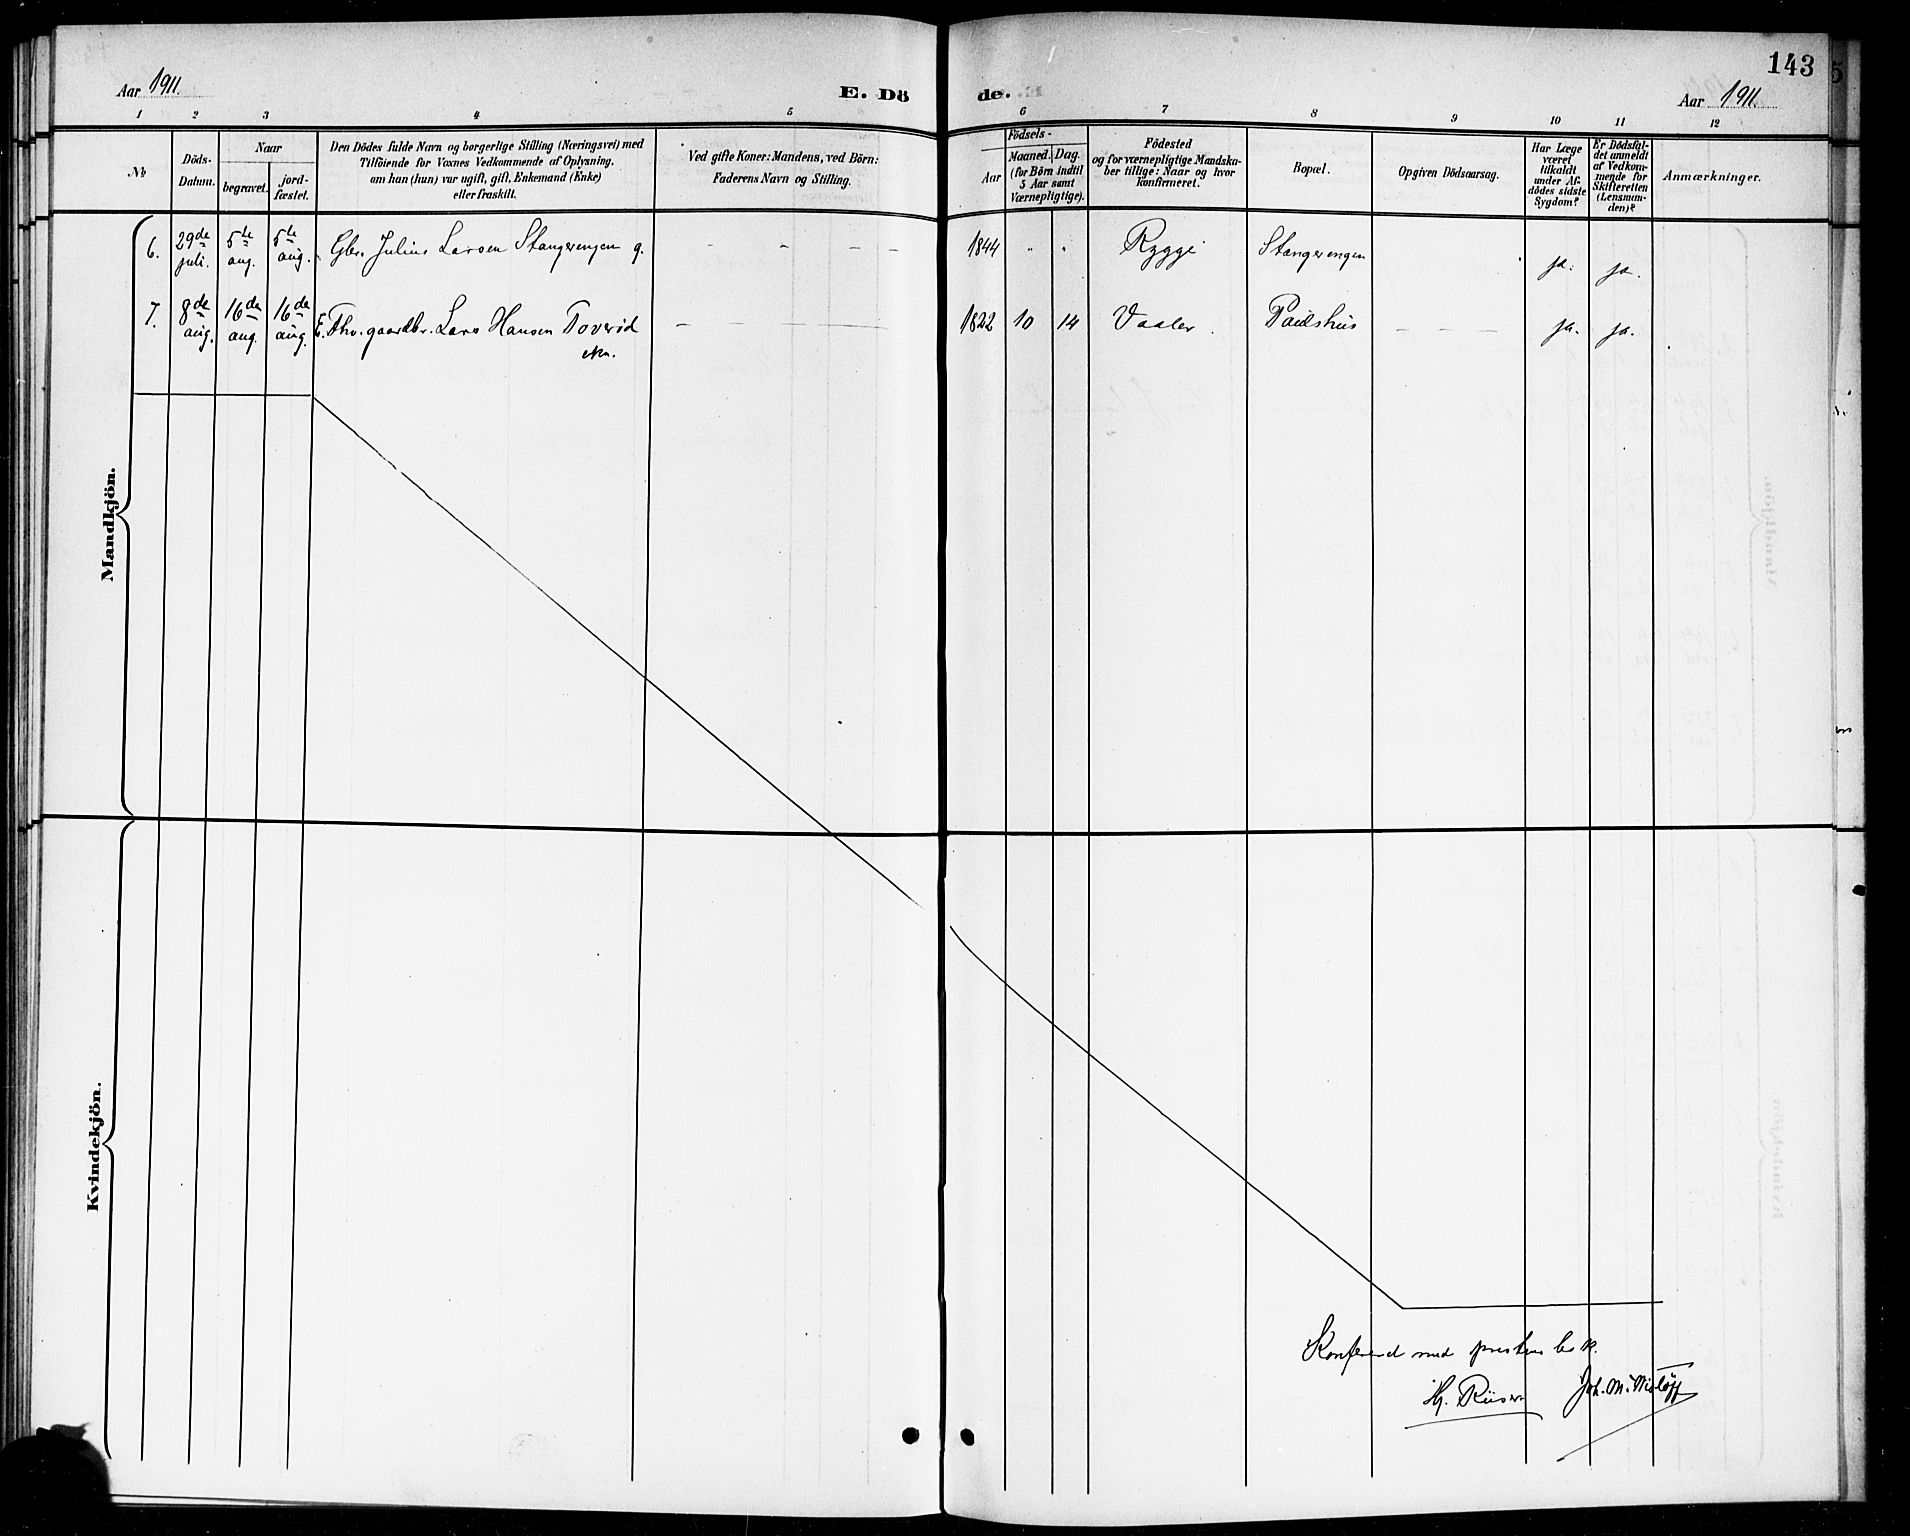 143
Aar 1911.
E. Dö
de.
Aar 1911.
1 2 3 4 5 6 7 8 9 10 11 12
№
Döds-
Datum.
Naar
begravet.
jord-
fæstet.
Den Dödes fulde Navn og borgerlige Stilling (Næringsvei) med
Tilföiende for Voxnes Vedkommende af Oplysning,
om han (hun) var ugift, gift, Enkemand (Enke)
eller fraskilt.
Ved gifte Koner: Mandens, ved Börn:
Faderens Navn og Stilling.
Födsels-
Aar
Maaned.
Dag.
(for Börn indtil
5 Aar samt
Værnepligtige).
Födested
og for værnepligtige Mandska-
ber tillige: Naar og hvor
konfirmeret.
Bopæl.
Opgiven Dödsaarsag.
Har Læge
været
tilkaldt
under Af-
dödes sidste
Sygdom?
Er Dödsfal-
det anmeldt
af Vedkom-
mende for
Skifteretten
(Lensman-
den)?
Anmærkninger.
Mandkjön.
6. 29de juli. 5te aug. 5te aug. Gbr. Julius Larsen Stangerengen g. 1844 " " Rygge Stangerengen ja. ja.
7. 8de aug. 16de aug. 16de aug. Fhv. gaardbr. Lars Hansen Toverød 1822 10 14 Vaaler Paulshus ja. ja.
ekm.
Kvindekjön.
Konfereret med prestens bok.
Hj. Riiser Joh. M. Wisløff